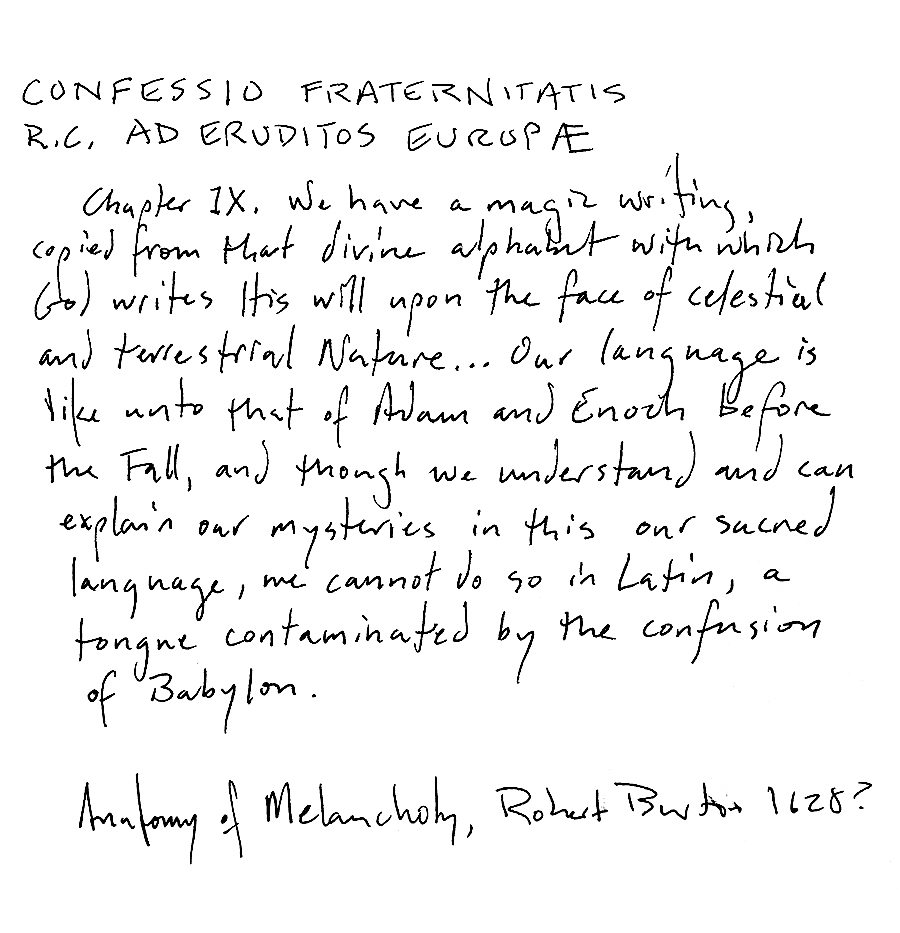 CONFESSIO FRATERNITATIS
R.C. AD ERUDITOS EUROPÆ
Chapter IX. We have a magic writing,
copied from that divine alphabet with which
God writes His will upon the face of celestial
and terrestrial Nature... Our language is
like unto that of Adam and Enoch before
the Fall, and though we understand and can
explain our mysteries in this our sacred
language, we cannot do so in Latin, a
tongue contaminated by the confusion
of Babylon.
Anatomy of Melancholy, Robert Burton 1628?